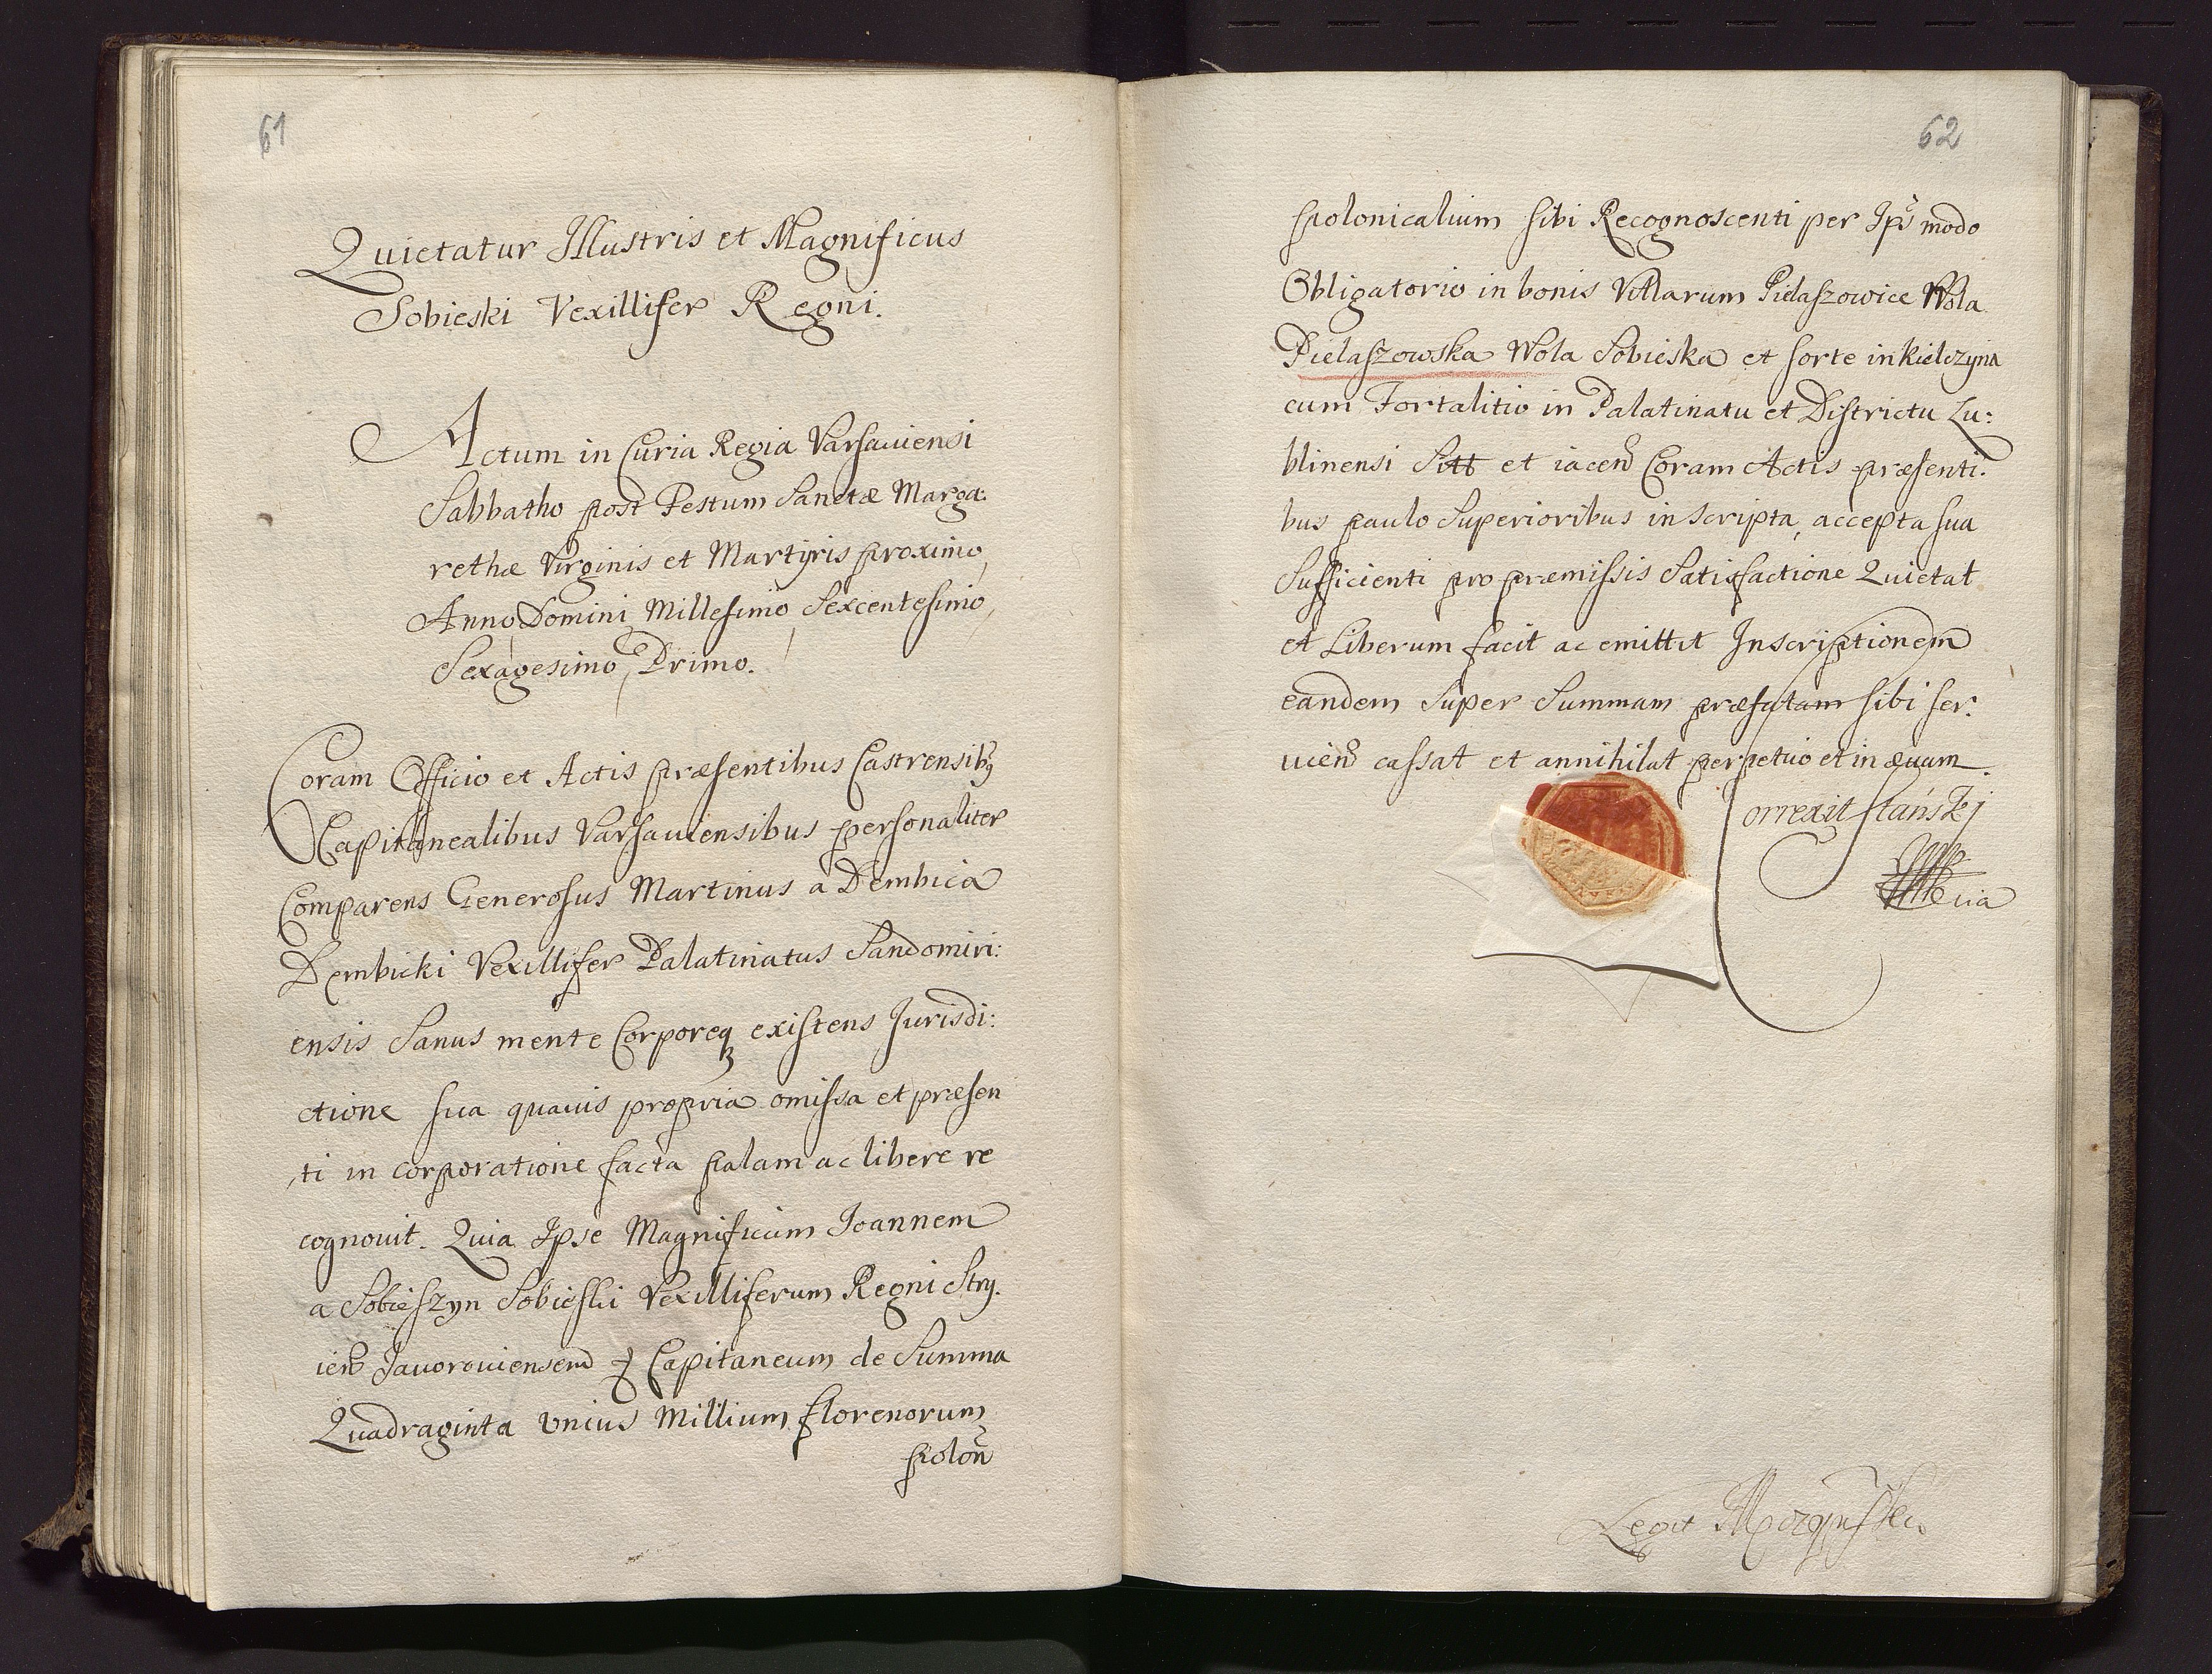 61
Quietatur Illustris et Magnificus
Sobieski Vexillifer Regni.
Actum in Curia Regia Varsauiensi
Sabbatho post Festum Sanctæ Marga:
rethæ Virginis et Martyris proximo,
Anno Domini Millesimo Sexcentesimo,
Sexagesimo, Primo.
Coram Officio et Actis præsentibus Castrensibꝰ
Capitanealibus Varsauiensibus personaliter
Comparens Generosus Martinus a Dembica
Dembicki Vexillifer Palatinatus Sandomiri:
ensis Sanus mente Corporeq existens Jurisdi:
ctione sua quauis propria omissa et præsen
ti in corporatione facta palam ac libere re
cognouit. Quia Ipse Magnificum Joannem
a Sobieszyn Sobieski Vexilliferum Regni Stry.
ien Jauorouiensem & Capitaneum de Summa
Quadraginta vnius Millium florenorum
polon
62
polonicalium sibi Recognoscenti per Ips modo
Obligatorio in bonis Villarum Pielaszowice Wola
Pielaszowska Wola Sobieska et sorte in Kielczyna
cum Fortalitio in Palatinatu et Districtu Lu:
blinensi Sitt et iacen Coram Actis præsenti:
bus paulo Superioribus inscripta, accepta sua
Sufficienti pro præmissis Satisfactione Quietat
et Liberum facit ac emittit Inscriptionem
eandem Super Summam præfatam sibi ser:
uien cassat et annihilat perpetuo et in æuum.
Correxit Stański
Legit